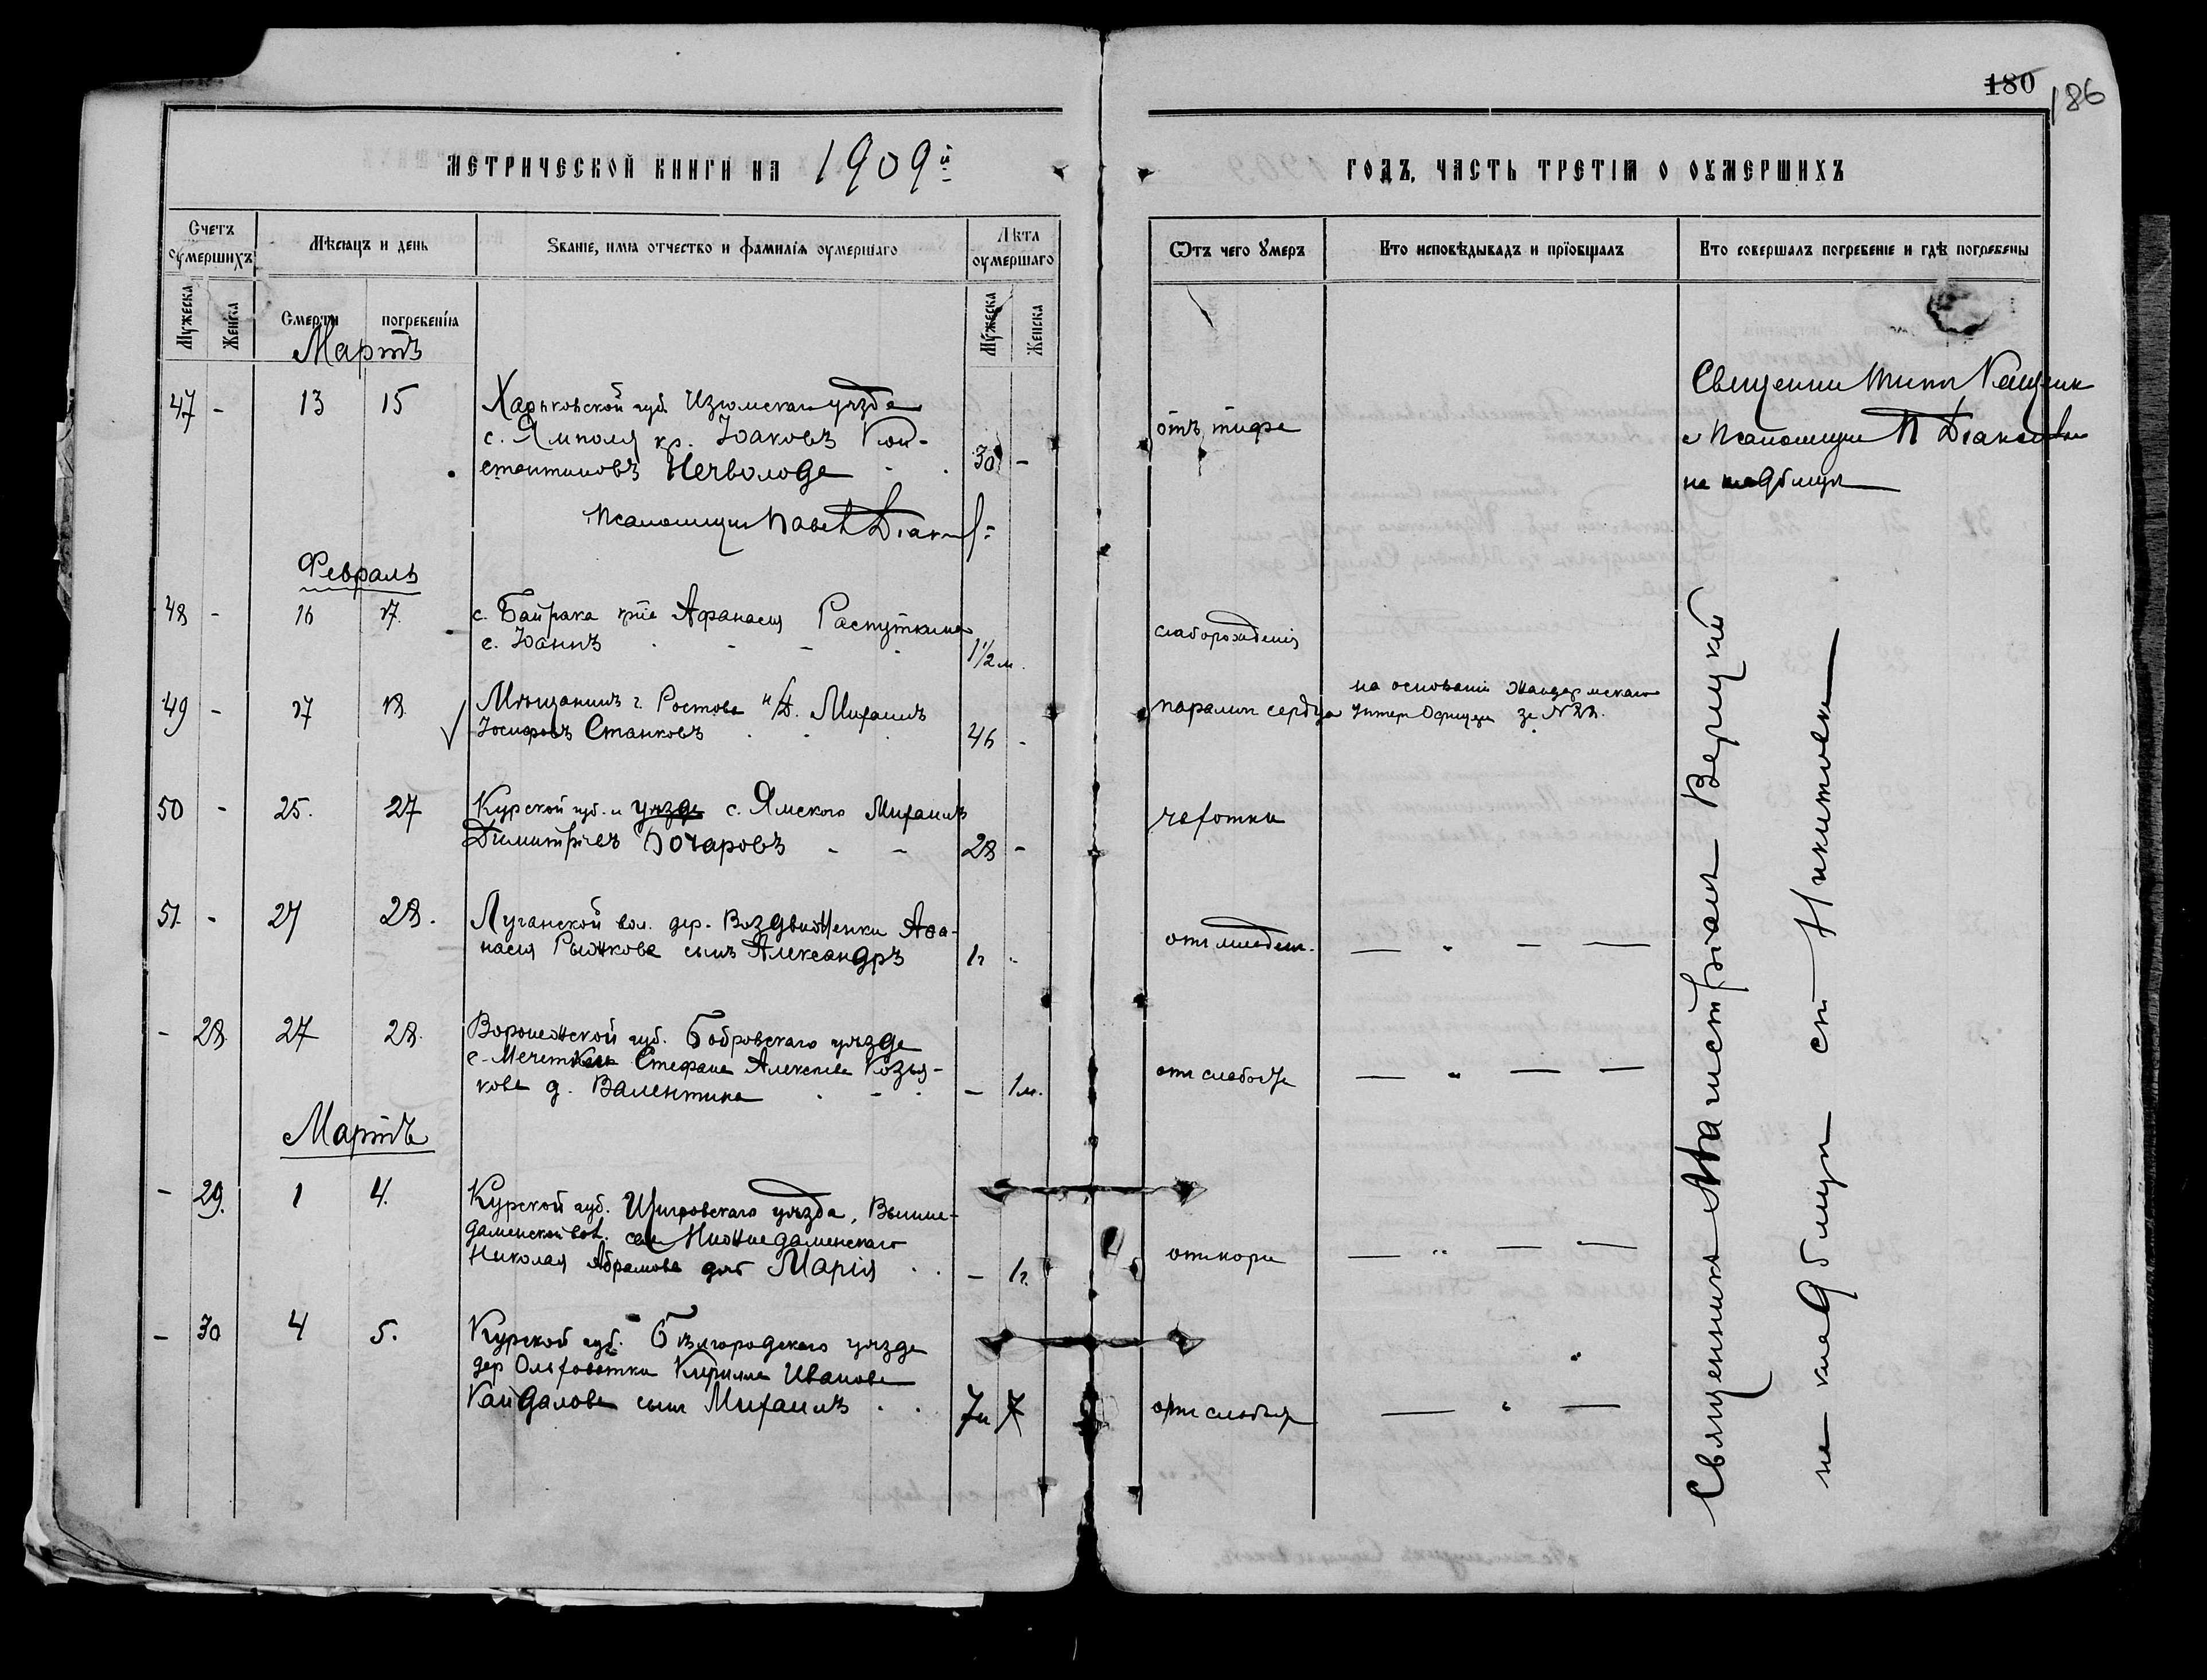 180
186
МЕТРИЧЕСКОЙ КНИГИ НА 1909й
ГОДЪ, ЧАСТЬ ТРЕТІЯ О ОУМЕРШИХЪ
Счетъ оумершихъ
Мѣсяцъ и день
Званіе, имя отчество и фамилія оумершаго
Лѣта оумершаго
Отъ чего умеръ
Кто исповѣдывалъ и пріобщалъ
Кто совершалъ погребеніе и гдѣ погребены
Мужеска
Женска
Смерти
погребенія
Мужеска
Женска
Мартъ
47 - 13 15 Харьковской губ. Изюмскаго уѣзда
с. Ямполя кр. Іоаковъ Кон-
стантиновъ Нечволода 30 -
отъ тифа
на кладбищѣ
Псаломщик Павел
Февраль
48 - 16 17. с. Байрака Афанасія Распуткина
с. Іоаннъ 1 1/2 м.
слаборожденія
49 - 17 18. Мѣщанинъ г. Ростова н/Д. Михаилъ
Іосифовъ Станковъ 46 -
паралич сердца
на основаніи Жандармскаго
Унтер Офицера за №
50 - 25. 27 Курской губ. и уѣзда с. Ямского Михаилъ
Димитріевъ Бочаровъ - - 28 -
чахотки
51. - 27 28. Луганской вол. дер. Воздвиженки Аѳа-
насія Рыжкова сынъ Александръ 1г -
от младен.
- 28. 27 28. Воронежской губ. Бобровскаго уѣзда
с. Мечетки Стефана Алексѣева Козья-
кова д. Валентина - 1м.
от слабости
Мартъ
- 29. 1 4. Курской губ. Щигровскаго уѣзда, Выше-
даменской вол. Нижнедаменскаго
Николая Абрамова доч Марія - 1г.
от кори
- 30 4 5. Курской губ. Бѣлгородскаго уѣзда
дер Ольховатки Кирилла Иванова
Кайдалова сынъ Михаилъ 7н 7
от слабости
Священникъ Верицкій
на кладбищѣ ст Никитовки